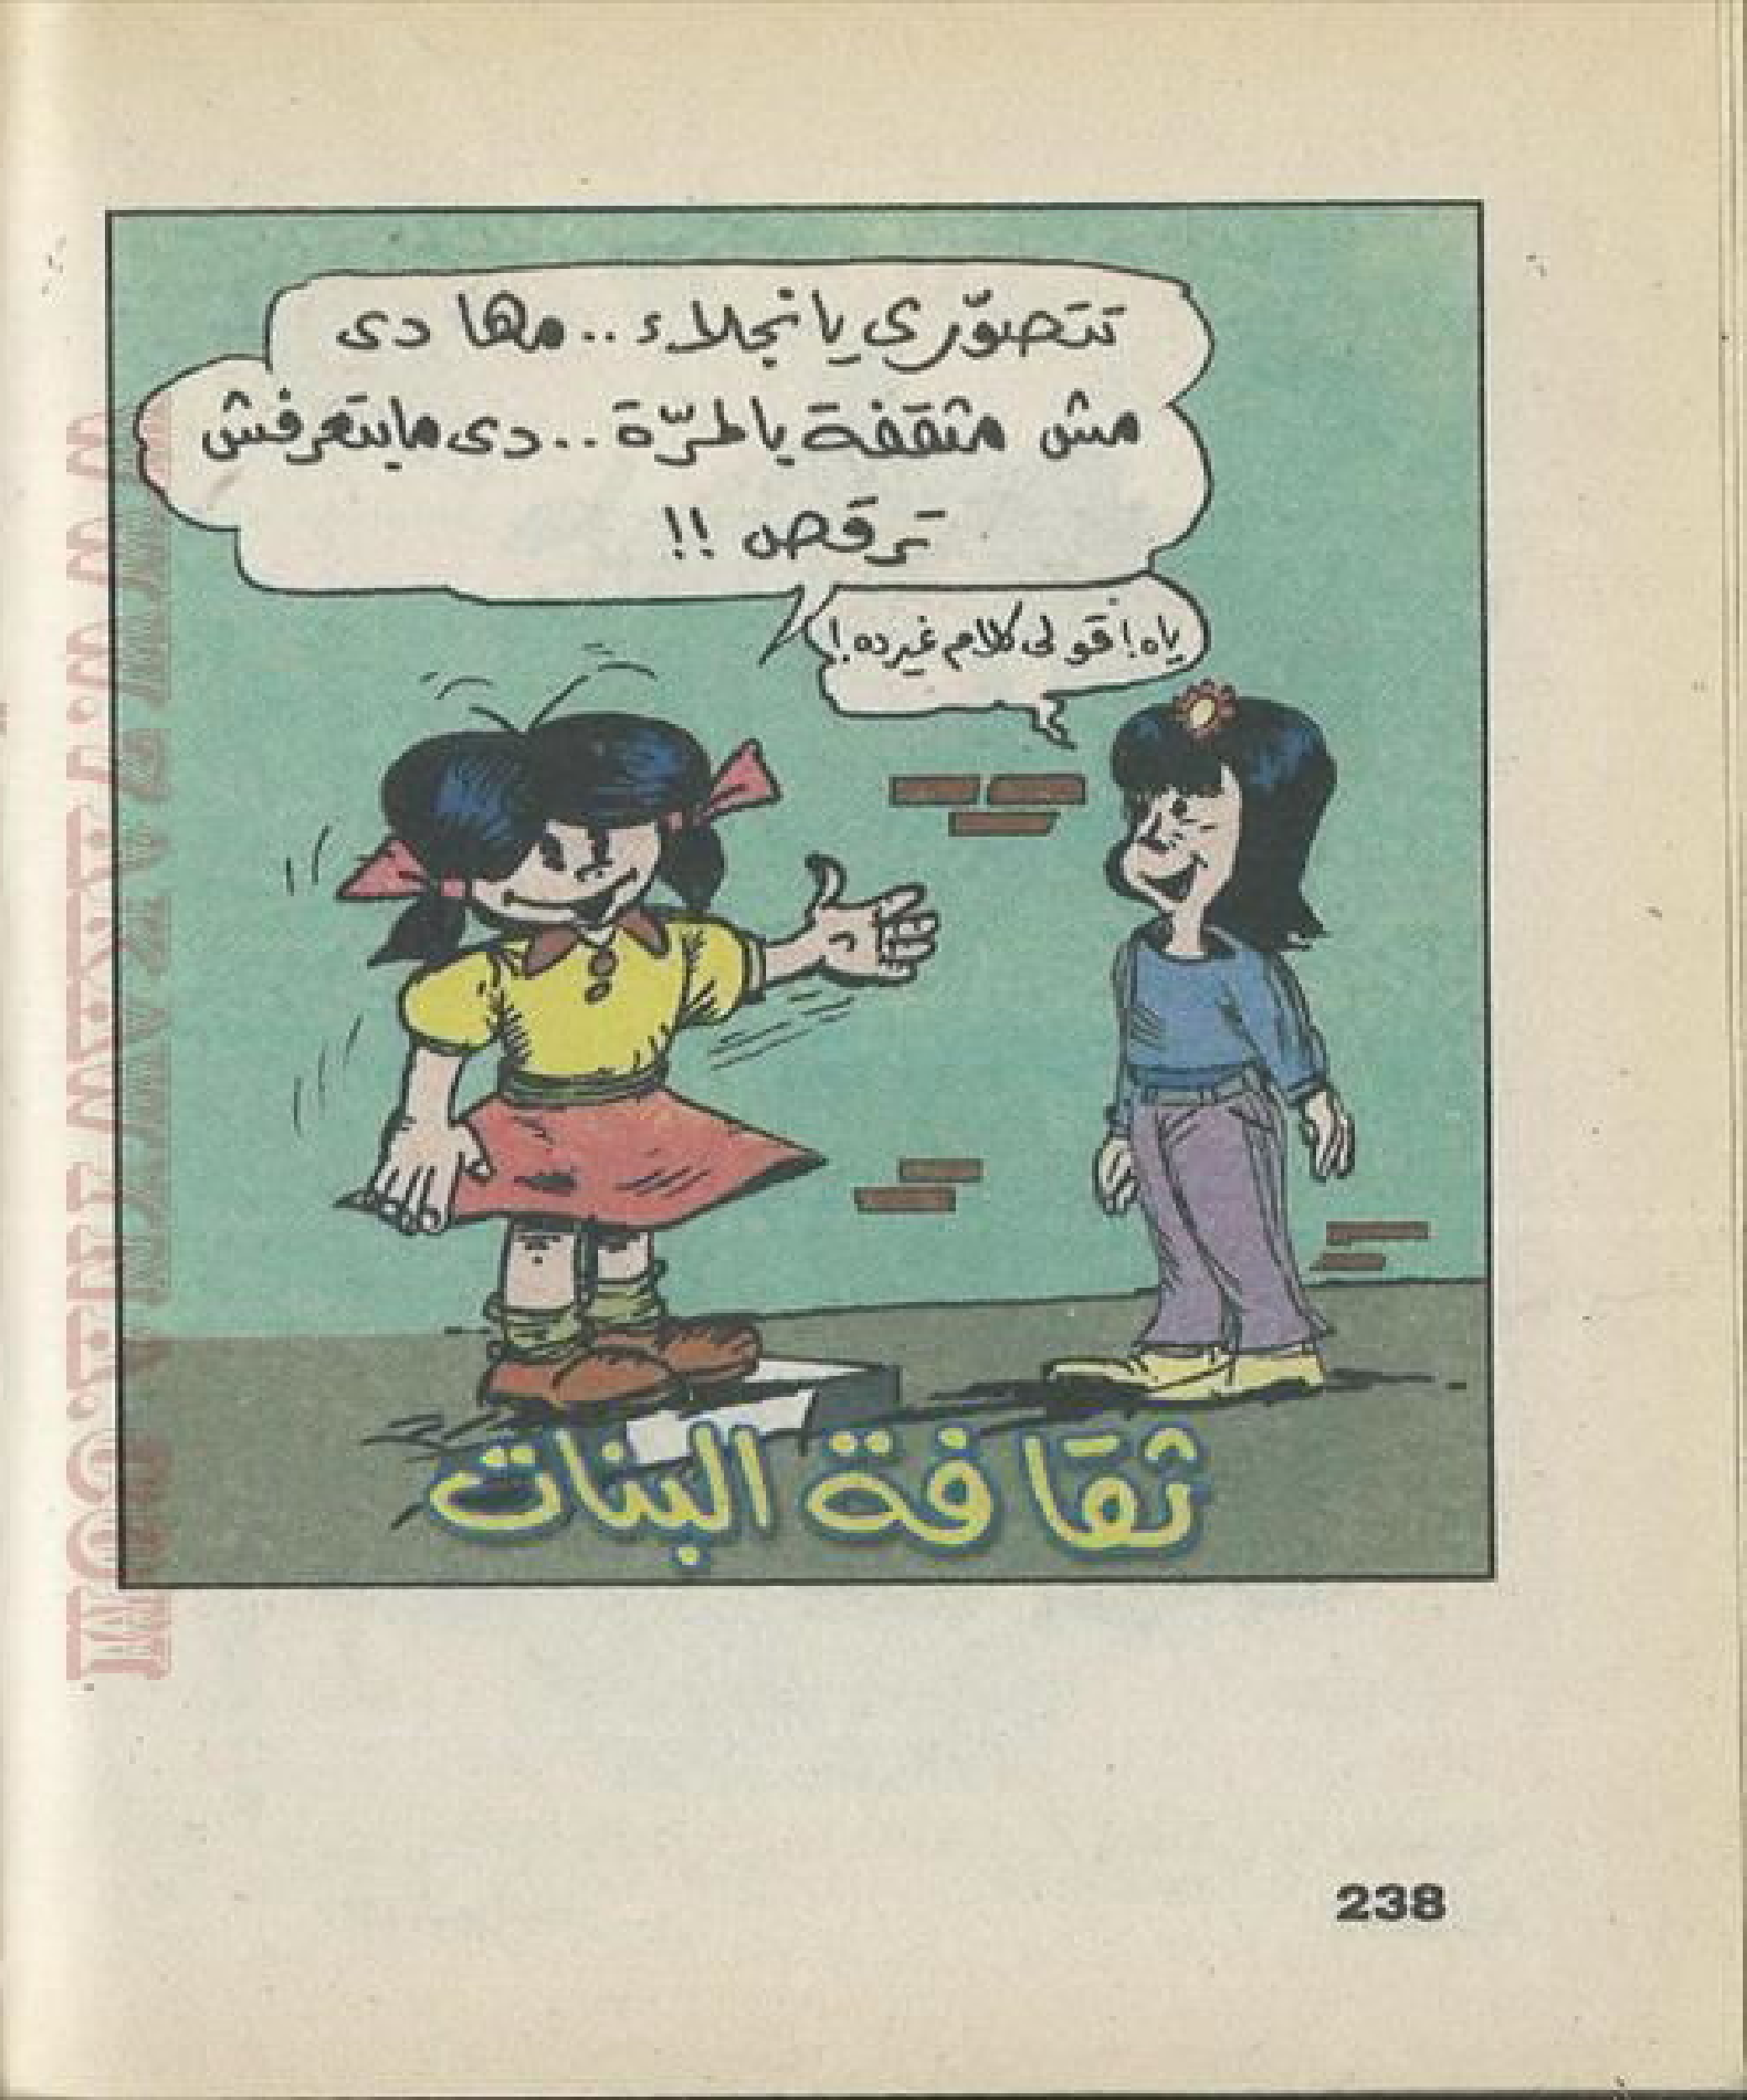 تتصوّرى يا نجلاء.. مها دى
مش مثقفة بالمرّة.. دى مابتعرفش
ترقص !!
ياه! قولى كلام غير ده!
ثقافة البنات
238